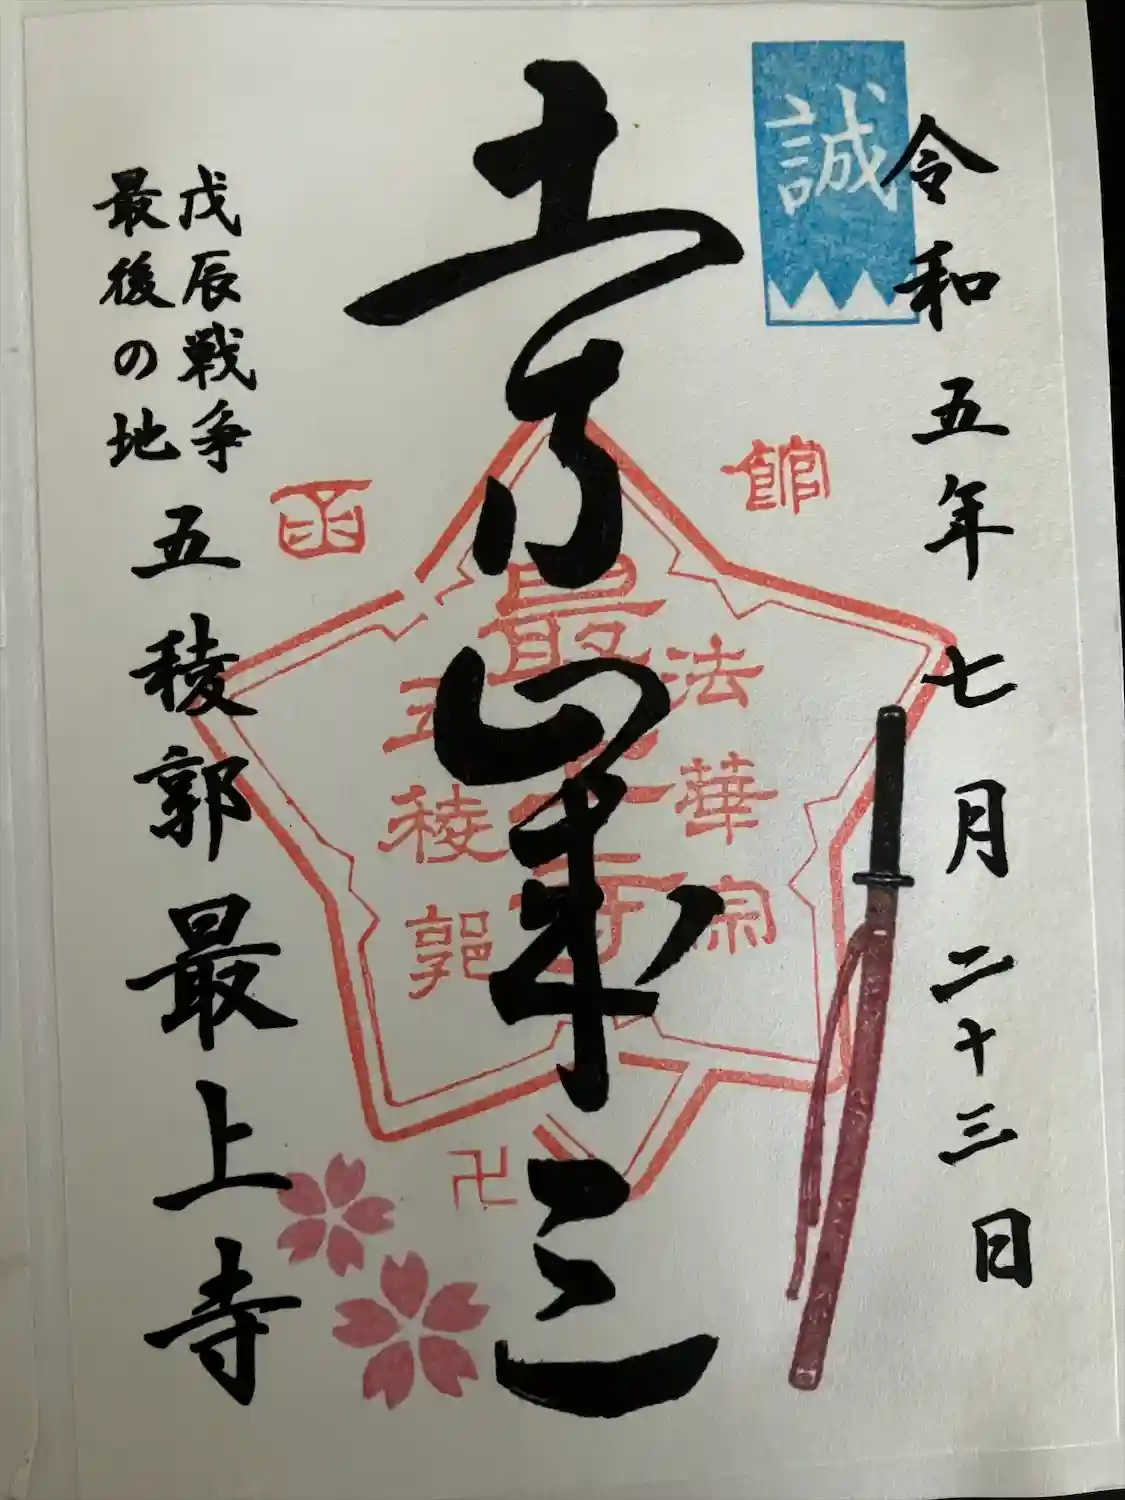 令和五年七月二十三日
誠
土方歳三
函館
法華宗
最上寺
五稜郭
卍
戊辰戦争
最後の地
五稜郭最上寺